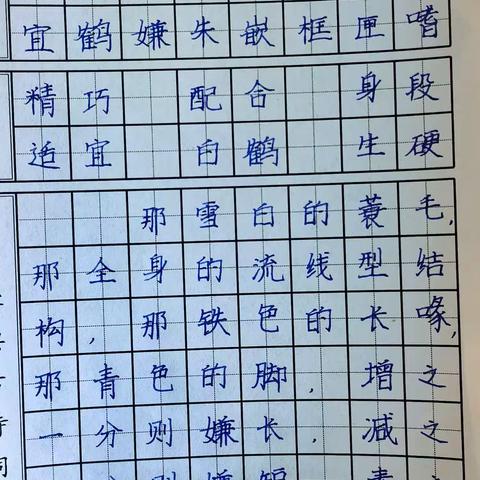 宜鹤嫌朱嵌框匣嗜
精巧 配合 身段
适宜 白鹤 生硬
那雪白的蓑毛,
那全身的流线型结
构,那铁色的长喙,
那青色的脚,增之
一分则嫌长,减之